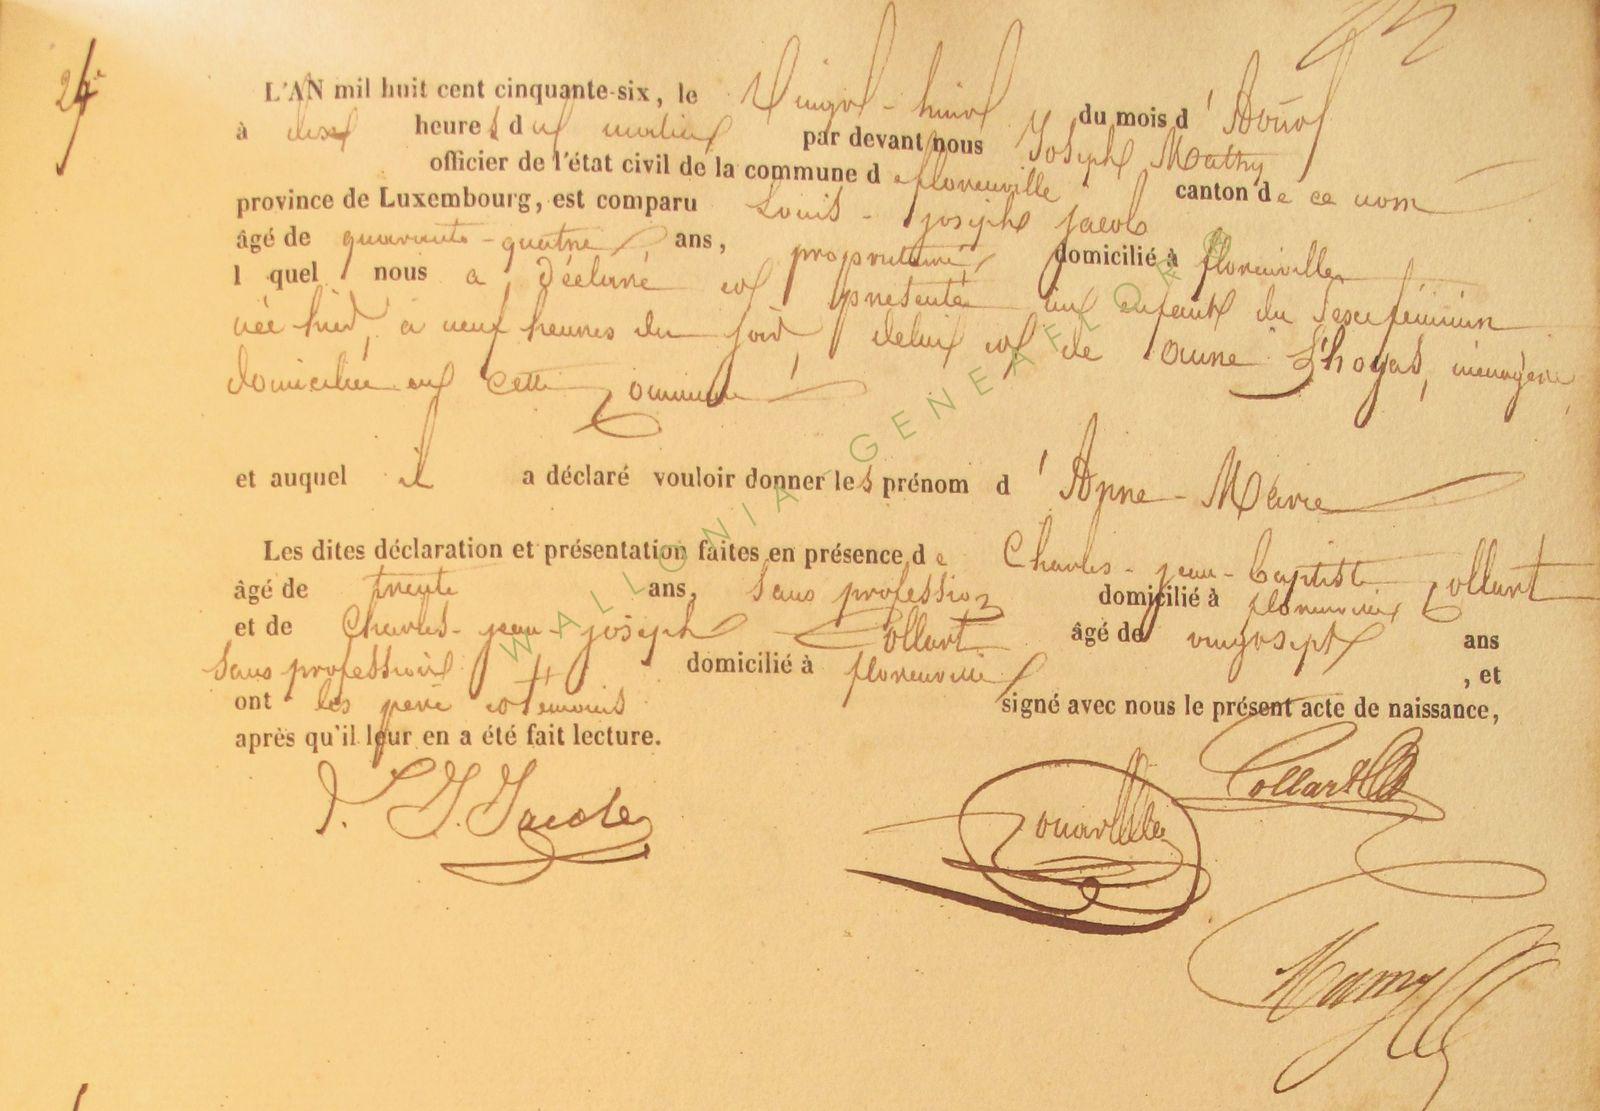 24e
L'AN mil huit cent cinquante-six, le Vingt-huit du mois d'Août
à dix heures du matin par devant nous Joseph Mathy
officier de l'état civil de la commune de florenville canton de ce nom
province de Luxembourg, est comparu Louis-joseph jacob
âgé de quarante-quatre ans, propriétaire, domicilié à florenville
l quel nous a déclaré et présenté un enfant du Sexe féminin
née hier, à neuf heures du soir, de lui et de anne L'hoyas, ménagère
domiciliée en cette Commune
et auquel il a déclaré vouloir donner les prénom d'Anne-Marie
Les dites déclaration et présentation faites en présence de Charles-jean-baptiste Collart
âgé de trente ans, sans profession domicilié à florenville
et de Charles-jean-joseph Collart âgé de vingt sept ans
sans profession domicilié à florenville, et
ont les père et témoins signé avec nous le présent acte de naissance,
après qu'il leur en a été fait lecture.
L. J. Jacob
Collart
Mathy
WALLONIA-GENEAFLOR ®